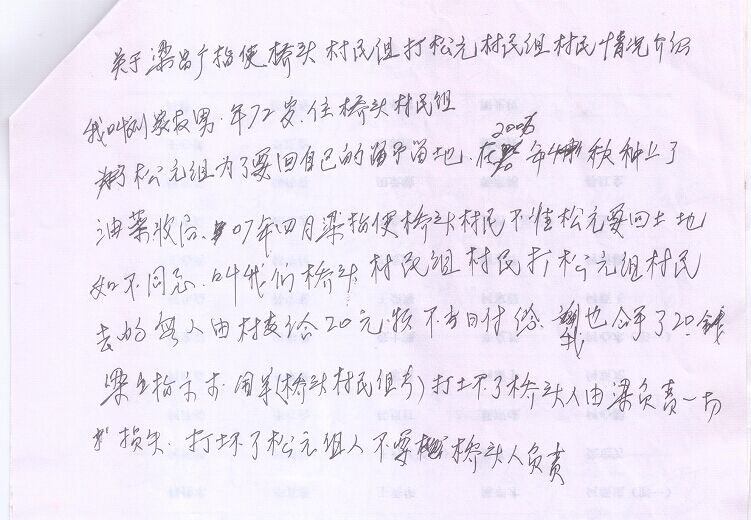 关于梁昌广指使桥头村民组打松元村民组村民情况介绍
我叫刘家友男.年72岁.住桥头村民组
松元组为了要回自己的留地.在2006年秋种上了
油菜收后.07年四月梁指使桥头村民不准松元要回土地
如不同意.叫我们桥头村民组村民打松元组村民
去的每人由村支给20元.当日付给.我也拿了20.钱
梁且指示(桥头村民组) 打坏了桥头人由梁负责一切
损失.打坏了松元组人不要桥头人负责